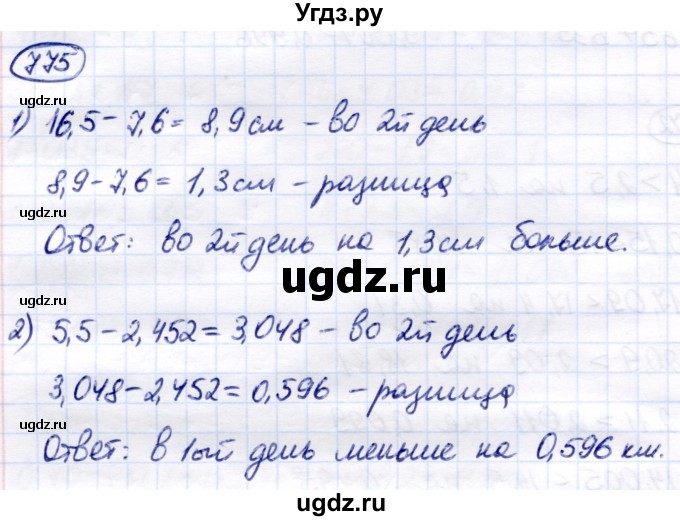 Угдз.ру
775
ugdz.ru
ugdz.ru
1) 16,5 - 7,6 = 8,9 см - во 2й день
8,9 - 7,6 = 1,3 см - разница
ugdz.ru
ugdz.ru
Ответ: во 2й день на 1,3 см больше.
ugdz.ru
2) 5,5 - 2,452 = 3,048 - во 2й день
3,048 - 2,452 = 0,596 - разница
ugdz.ru
ugdz.ru
Ответ: в 1ый день меньше на 0,596 км.
ugdz.ru